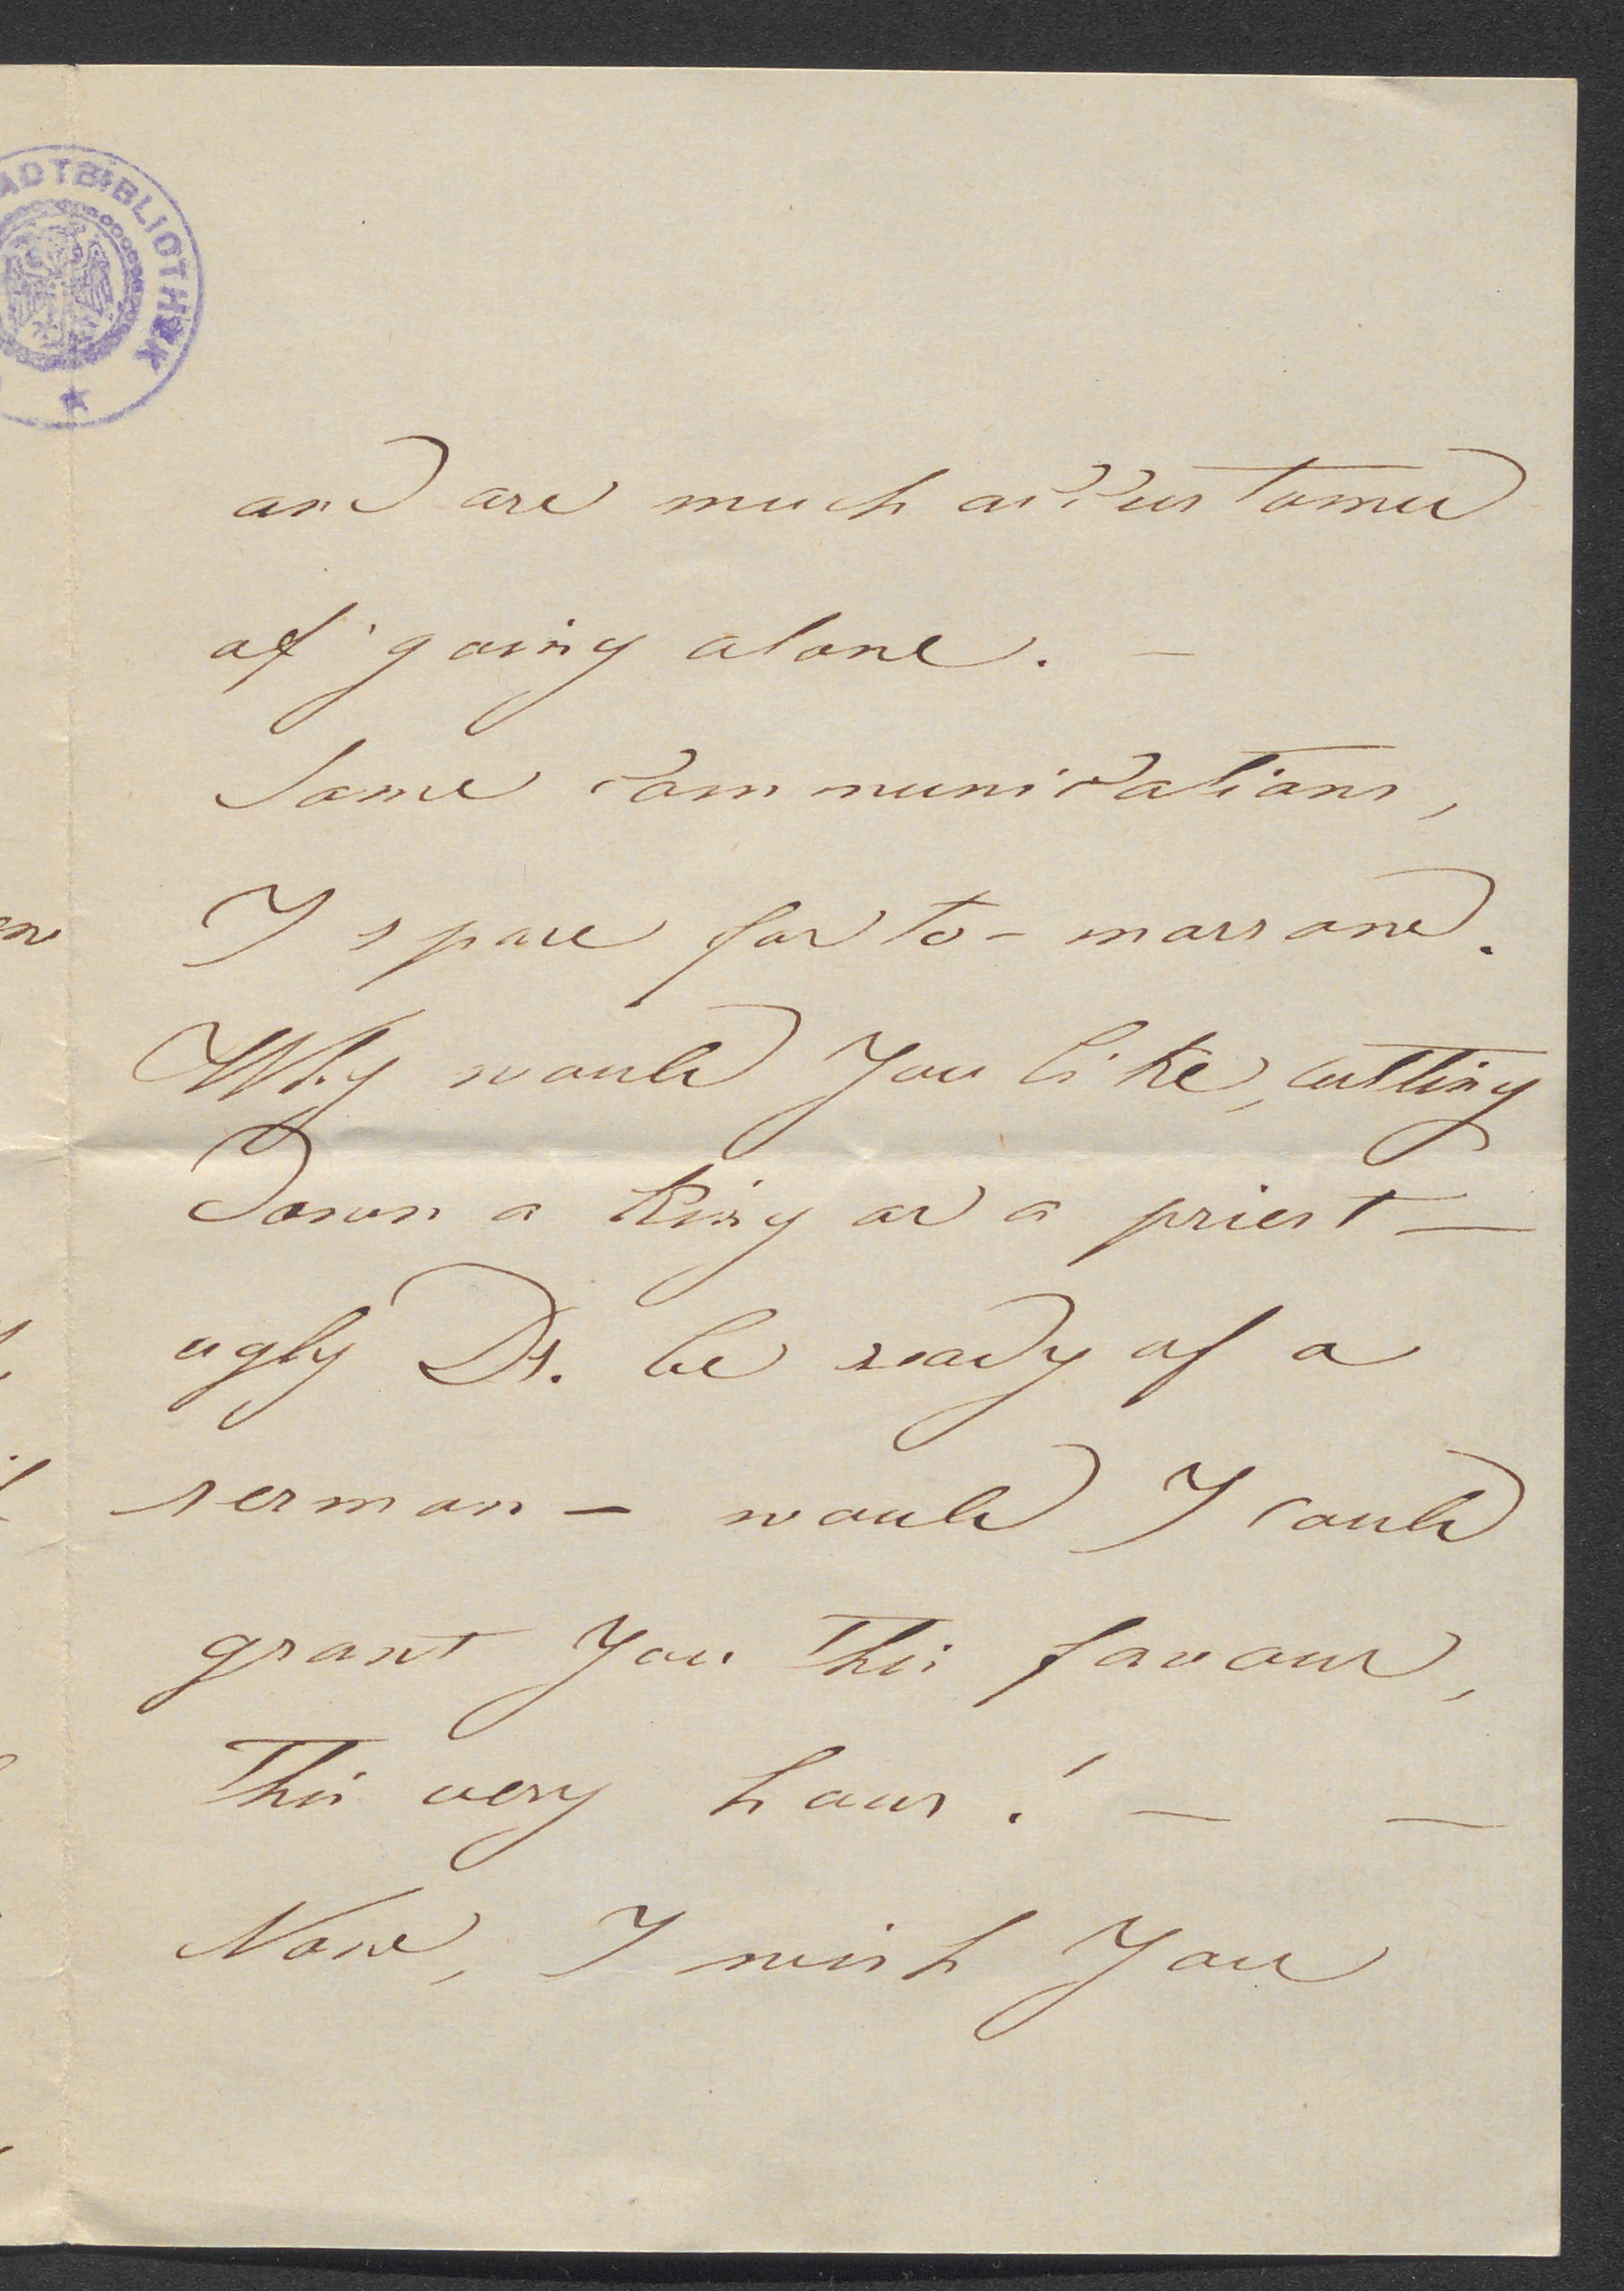 STADTBIBLIOTHEK
and are much accustomed
of going alone. —
Some communications,
I spare for to-morrow.
Why would You like, cutting
down a king or a priest —
ugly Dr. be ready of a
sermon — would I could
grant You this favour,
this very hour! — —
Now, I wish You